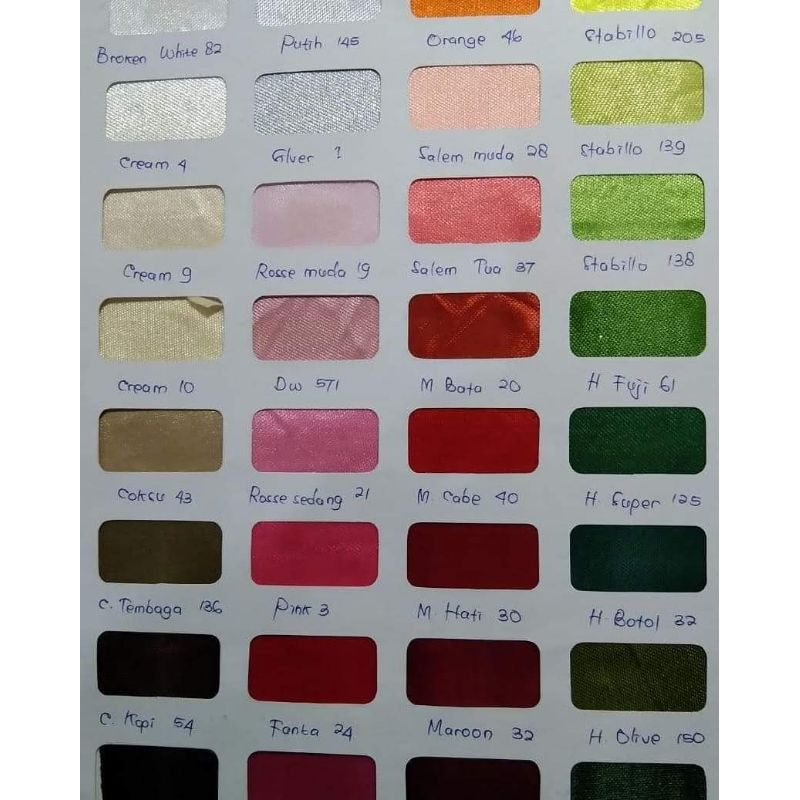 Broken White 82
Putih 145
Orange 46
Stabillo 205
Cream 4
Silver 1
Salem muda 28
Stabillo 139
Cream 9
Rosse muda 19
Salem Tua 37
Stabillo 138
Cream 10
DW 571
M Bata 20
H Fuji 61
Coksu 43
Rosse sedang 21
M. Cabe 40
H. Super 125
C. Tembaga 136
Pink 3
M. Hati 30
H. Botol 32
C. Kopi 54
Fanta 24
Maroon 32
H. Olive 150